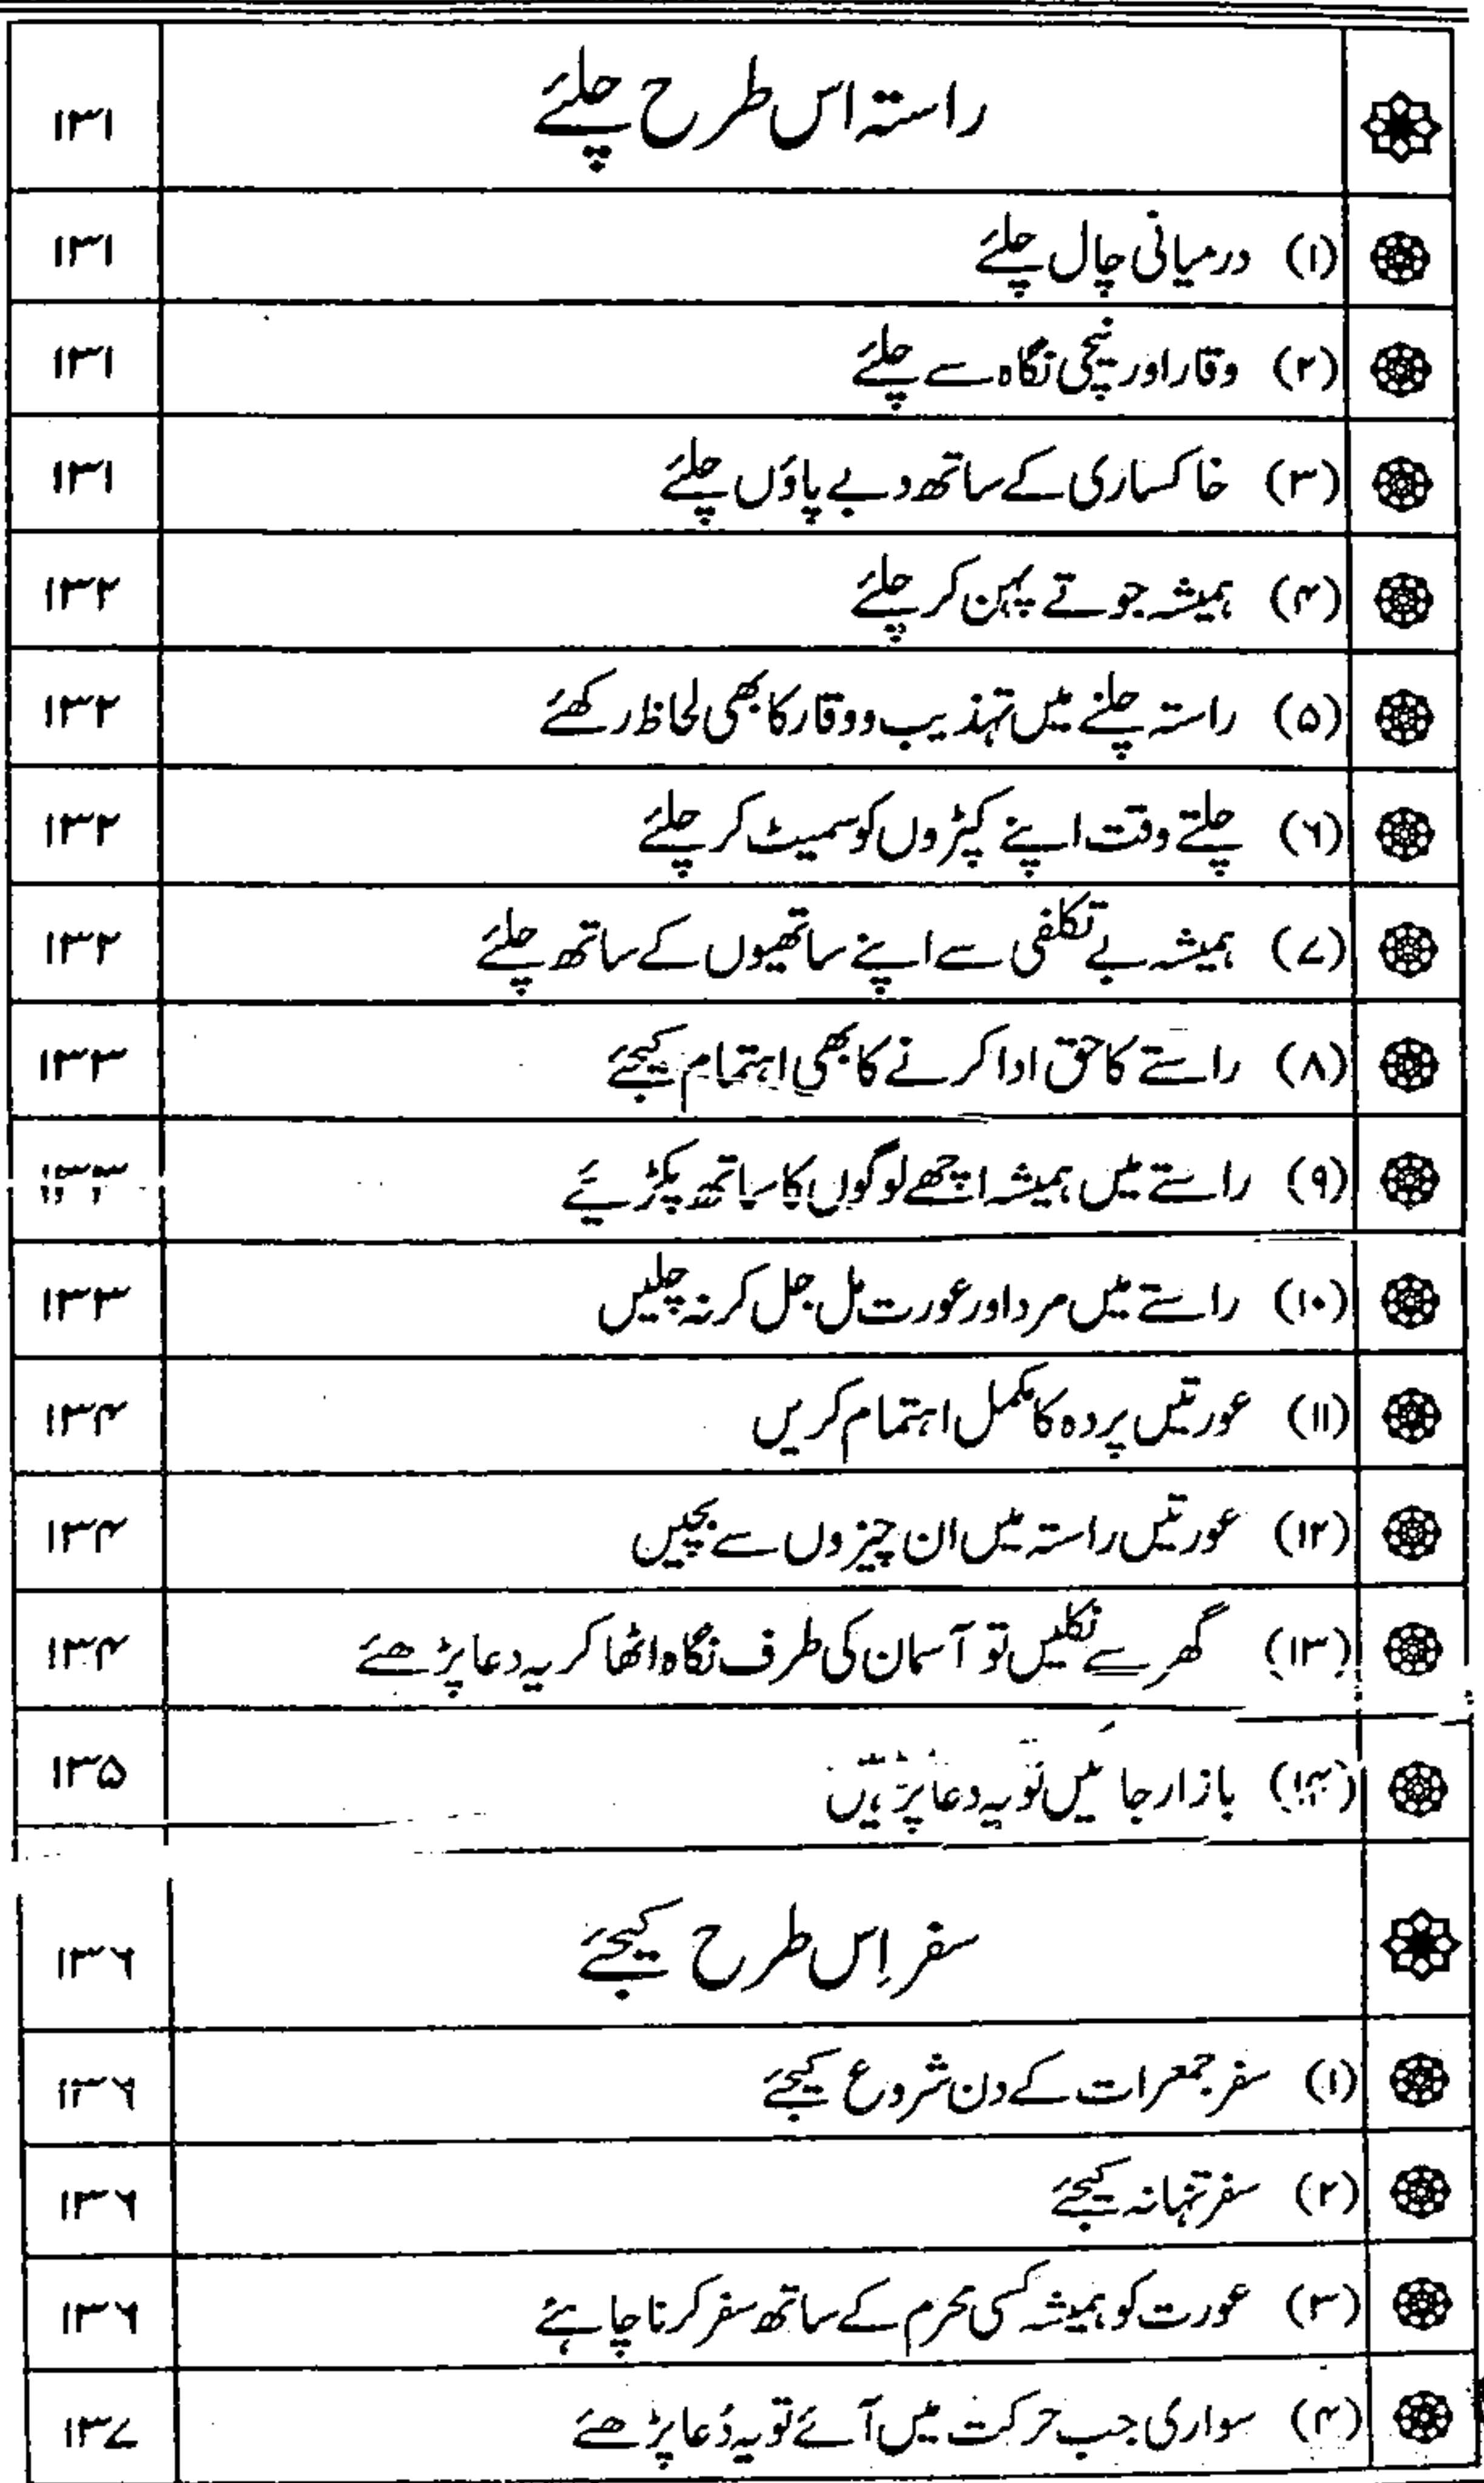 راستہ اس طرح چلئے ۱۳۱
(۱) درمیانی چال چلئے ۱۳۱
(۲) وقار اور نیچی نگاہ سے چلئے ۱۳۱
(۳) خاکساری کے ساتھ دبے پاؤں چلئے ۱۳۱
(۴) ہمیشہ جوتے پہن کر چلئے ۱۳۲
(۵) راستہ چلنے میں تہذیب و وقار کا بھی لحاظ رکھئے ۱۳۲
(۶) چلتے وقت اپنے کپڑوں کو سمیٹ کر چلئے ۱۳۲
(۷) ہمیشہ بے تکلفی سے اپنے ساتھیوں کے ساتھ چلئے ۱۳۲
(۸) راستے کا حق ادا کرنے کا بھی اہتمام کیجئے ۱۳۳
(۹) راستے میں ہمیشہ اچھے لوگوں کا ساتھ پکڑیئے ۱۳۳
(۱۰) راستے میں مرد اور عورت مل جل کر نہ چلیں ۱۳۳
(۱۱) عورتیں پردہ کا مکمل اہتمام کریں ۱۳۴
(۱۲) عورتیں راستہ میں ان چیزوں سے بچیں ۱۳۴
(۱۳) گھر سے نکلیں تو آسمان کی طرف نگاہ اٹھا کر یہ دعا پڑھئے ۱۳۴
(۱۴) بازار جائیں تو یہ دعا پڑھیں ۱۳۵
سفر اِس طرح کیجئے ۱۳۶
(۱) سفر جمعرات کے دن شروع کیجئے ۱۳۶
(۲) سفر تنہا نہ کیجئے ۱۳۶
(۳) عورت کو ہمیشہ کسی محرم کے ساتھ سفر کرنا چاہئے ۱۳۶
(۴) سواری جب حرکت میں آئے تو یہ دُعا پڑھئے ۱۳۷